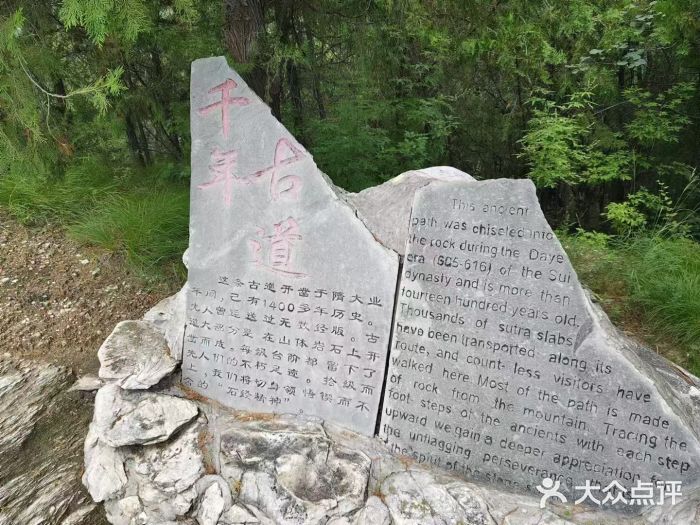 千年
古道
这条古道开凿于隋大业
年间，已有1400多年历史。
先人曾运送过无数经版。古
道大部分是在山体岩石上开
凿而成，每级台阶都留下了
先人们的不朽足迹。拾级而
上，我们将切身领悟锲而不
舍的“石经精神”。
This ancient
path was chiseled into
the rock during the Daye
era (605-616) of the Sui
dynasty and is more than
fourteen hundred years old.
Thousands of sutra slabs
have been transported along its
route, and count- less visitors have
walked here. Most of the path is made
of rock from the mountain. Tracing the
foot steps of the ancients with each step
upward we gain a deeper appreciation
the unflagging perseverance
the spirit of the stone
大众点评